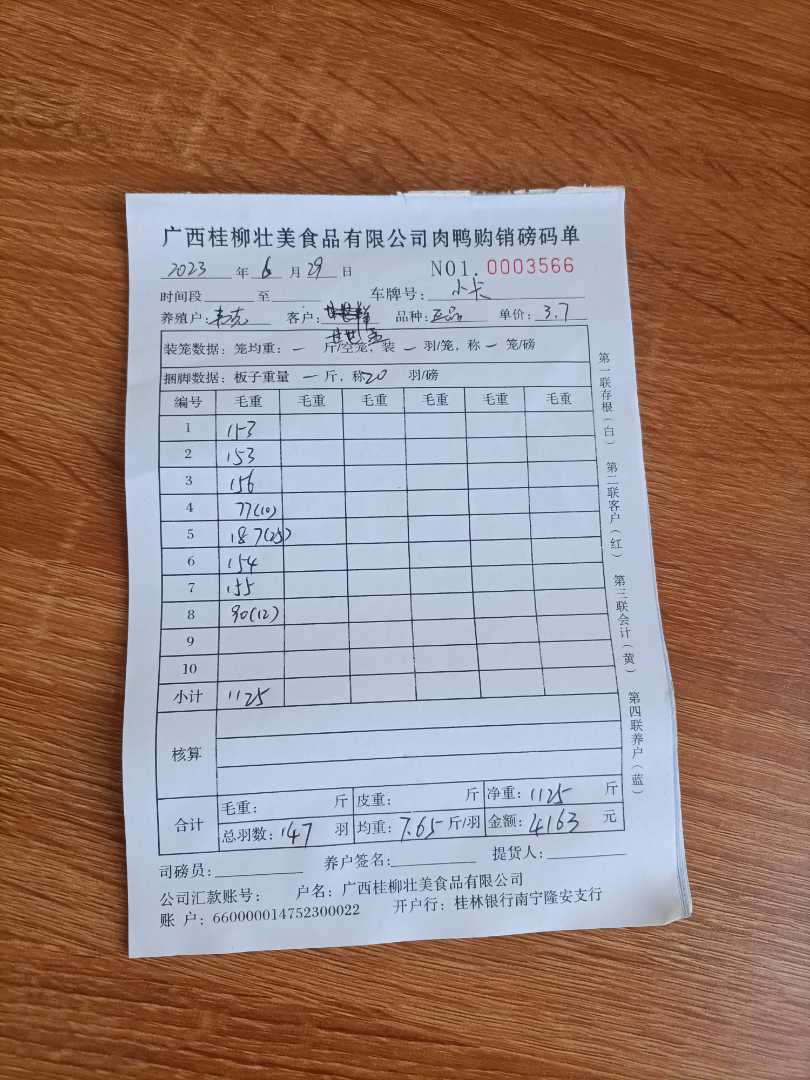 广西桂柳壮美食品有限公司肉鸭购销磅码单
2023 年 6 月 29 日 NO1. 0003566
时间段 至 车牌号: 小卡
养殖户: 客户: 品种: 正品 单价: 3.7
装笼数据: 笼均重: 一 斤/空笼, 装 一 羽/笼, 称 一 笼/磅
捆脚数据: 板子重量 一 斤, 称 20 羽/磅
编号 毛重 毛重 毛重 毛重 毛重 毛重
1 153
2 153
3 156
4 77(10)
5 187(25)
6 154
7 155
8 90(12)
9
10
小计 1125
核算
合计 毛重: 斤 皮重: 斤 净重: 1125 斤
总羽数: 147 羽 均重: 7.65 斤/羽 金额: 4163 元
司磅员: 养户签名: 提货人:
公司汇款账号: 户名: 广西桂柳壮美食品有限公司
账 户: 660000014752300022 开户行: 桂林银行南宁隆安支行
第一联存根(白) 第二联客户(红) 第三联会计(黄) 第四联养户(蓝)